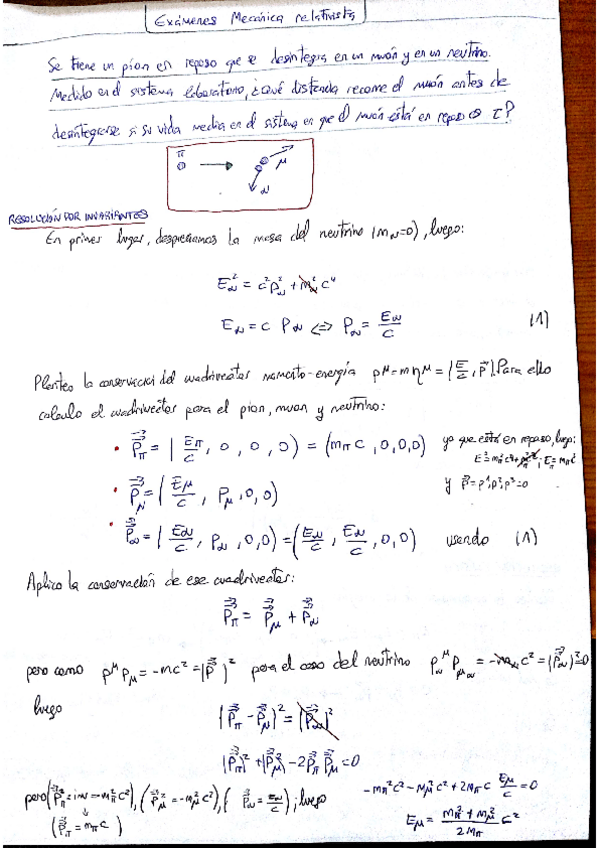 Exámenes Mecánica relativista
Se tiene un pion en reposo que se desintegra en un muón y en un neutrino.
Medido en el sistema laboratorio, ¿Qué distancia recorre el muón antes de
desintegrarse si su vida media en el sistema en que el muón está en reposo es τ?
π → μ
ν
RESOLUCIÓN POR INVARIANTES
En primer lugar, despreciamos la masa del neutrino (m_ν=0), luego:
E_ν² = c²p_ν² + m_ν²c⁴
E_ν = c p_ν <=> p_ν = E_ν/c (1)
Planteo la conservación del cuadrivector momento-energía p^μ = mη^μ = (E/c, p⃗). Para ello
calculo el cuadrivector para el pion, muon y neutrino:
• P⃗_π = (E_π/c, 0, 0, 0) = (m_π c, 0,0,0) ya que está en reposo, luego:
E²=m_π²c⁴+p_π²c², E_π=m_πc²
y p⃗=p¹,p²,p³=0
• P⃗_μ = (E_μ/c, p_μ, 0, 0)
• P⃗_ν = (E_ν/c, p_ν, 0, 0) = (E_ν/c, E_ν/c, 0, 0) usando (1)
Aplico la conservación de ese cuadrivector:
P⃗_π = P⃗_μ + P⃗_ν
pero como p^μ p_μ = -mc² = (P⃗)² para el caso del neutrino p_ν^μ p_μν = -m_ν c² = (P⃗_ν)² = 0
luego
(P⃗_π - P⃗_μ)² = (P⃗_ν)²
(P⃗_π)² + (P⃗_μ)² - 2P⃗_π P⃗_μ = 0
pero (P⃗_π² = inv = -m_π²c²), (P⃗_μ² = -m_μ²c²), (P⃗_ν = E_ν/c); luego
(P⃗_π = m_π c)
-m_π²c² - m_μ²c² + 2m_π c E_μ/c = 0
E_μ = (m_π² + m_μ²)/(2m_π) c²